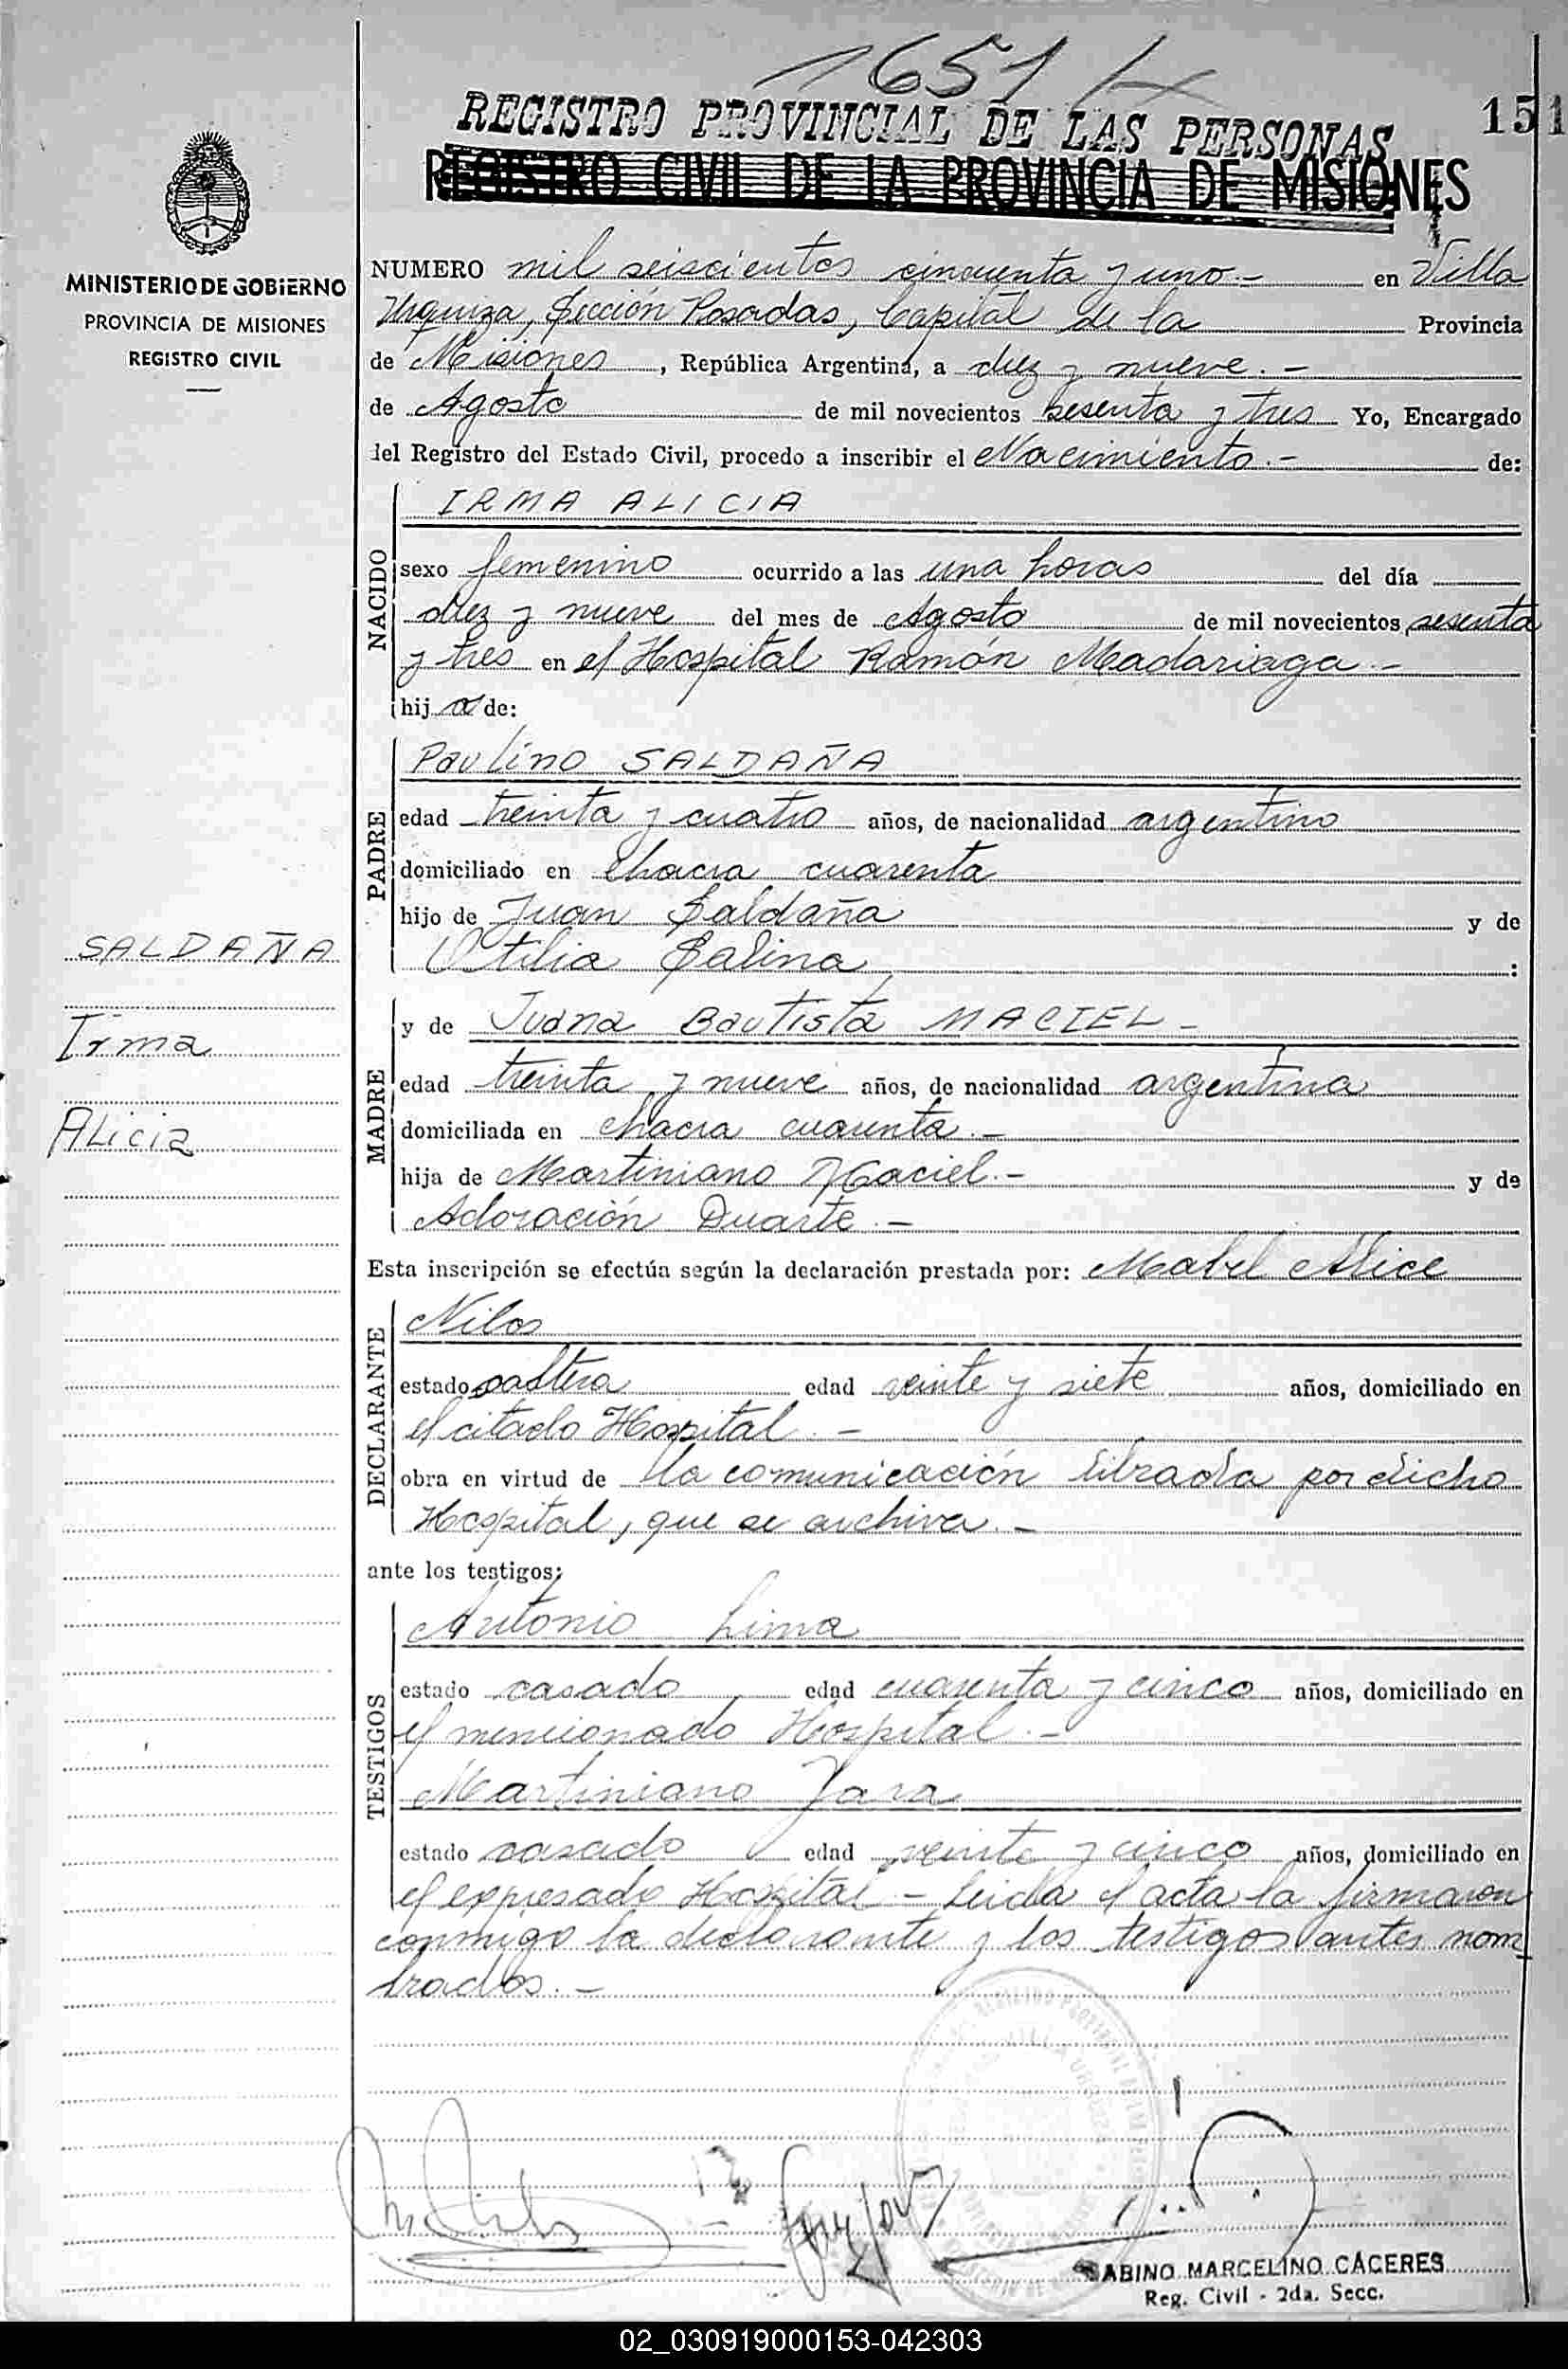 1651
REGISTRO PROVINCIAL DE LAS PERSONAS
151
REGISTRO CIVIL DE LA PROVINCIA DE MISIONES
MINISTERIO DE GOBIERNO
PROVINCIA DE MISIONES
REGISTRO CIVIL
NUMERO mil seiscientos cincuenta y uno.- en Villa
Urquiza, Sección Posadas, Capital de la Provincia
de Misiones, República Argentina, a diez y nueve.-
de Agosto de mil novecientos sesenta y tres Yo, Encargado
del Registro del Estado Civil, procedo a inscribir el Nacimiento.- de:
NACIDO
IRMA ALICIA
sexo femenino ocurrido a las una horas del día
diez y nueve del mes de Agosto de mil novecientos sesenta
y tres en el Hospital Ramón Madariaga.-
hij a de:
PADRE
Paulino SALDAÑA
edad treinta y cuatro años, de nacionalidad argentino
domiciliado en chacra cuarenta
hijo de Juan Saldaña y de
Otilia Salina :
SALDAÑA
Irma
Alicia
MADRE
y de Juana Bautista MACIEL-
edad treinta y nueve años, de nacionalidad argentina
domiciliada en chacra cuarenta.-
hija de Martiniano Maciel.- y de
Adoración Duarte.-
Esta inscripción se efectúa según la declaración prestada por: Mabel Alice
DECLARANTE
Nilos
estado soltera edad veinte y siete años, domiciliado en
el citado Hospital.-
obra en virtud de la comunicación librada por dicho
Hospital, que se archiva.-
ante los testigos:
TESTIGOS
Antonio Lima
estado casado edad cuarenta y cinco años, domiciliado en
el mencionado Hospital.-
Martiniano Jara
estado casado edad veinte y cinco años, domiciliado en
el expresado Hospital - Leida el acta la firmaron
conmigo la declarante y los testigos antes nom
brados.-
SABINO MARCELINO CACERES
Reg. Civil - 2da. Secc.
02_030919000153-042303